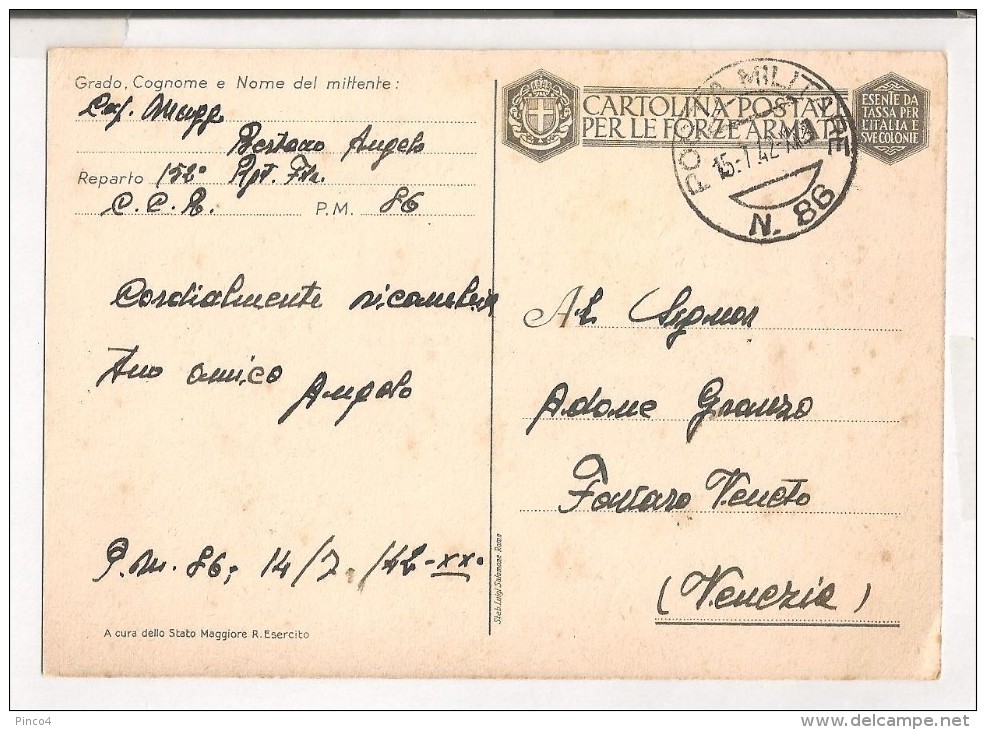 Grado, Cognome e Nome del mittente:
Cap. Magg
Angelo
Reparto 152° Rgt. Ftr.
C. C. R. P. M. 86
Cordialmente ricambia
tuo amico
Angelo
P.M. 86, 14/7/42-XX°
A cura dello Stato Maggiore R. Esercito
Stab. Luigi Salomone Roma
CARTOLINA POSTALE
PER LE FORZE ARMATE
ESENTE DA
TASSA PER
L'ITALIA E
SVE COLONIE
POSTA MILITARE
15.7.42.XX
N. 86
Al Signor
Adone Granzo
Veneto
(Venezia)
Pinco4
delcampe.net